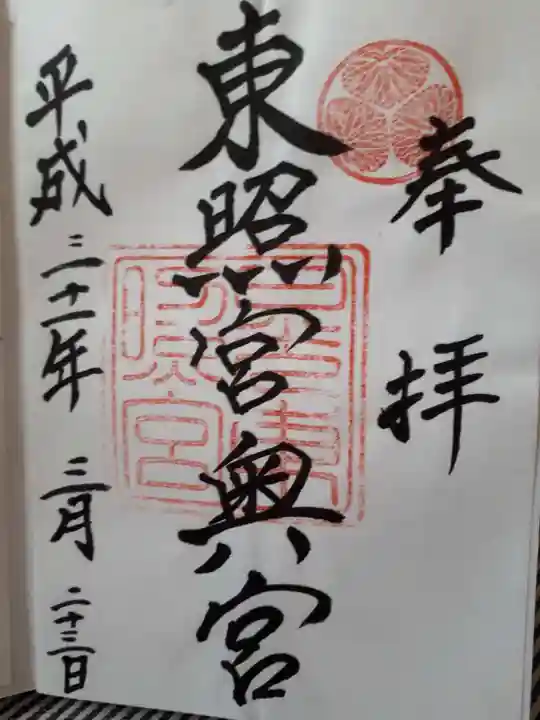 奉拝
東照宮奥宮
平成三十一年 三月二十三日